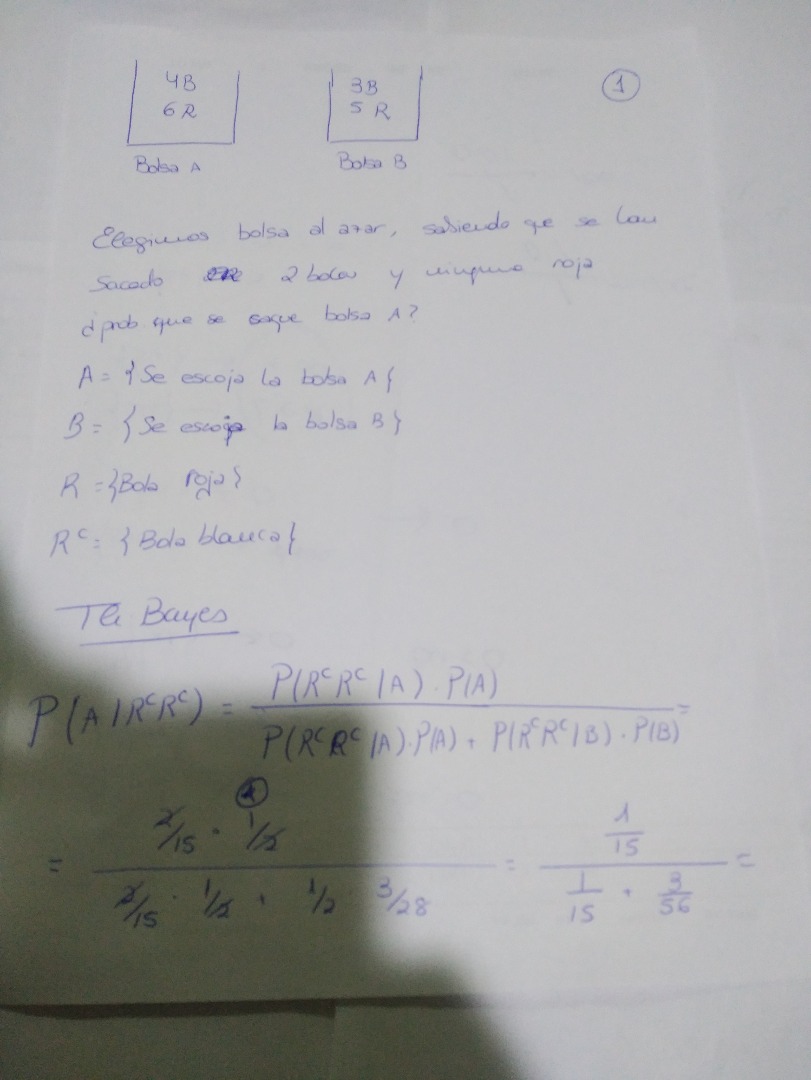 4B
6R
Bolsa A
3B
5 R
Bolsa B
1
Elegimos bolsa al azar, sabiendo que se han
sacado 2 bolas y ninguna roja
¿prob que se saque bolsa A?
A = {Se escoja la bolsa A{
B = {Se escoja la bolsa B}
R = {Bola roja}
Rᶜ = {Bola blanca}
Bayes
P(A|RᶜRᶜ) = P(RᶜRᶜ|A) · P(A) / P(RᶜRᶜ|A) · P(A) + P(RᶜRᶜ|B) · P(B) =
1
= 2/15 · 1/2 / 2/15 · 1/2 + 1/2 · 3/28 = 1/15 / 1/15 + 3/56 =